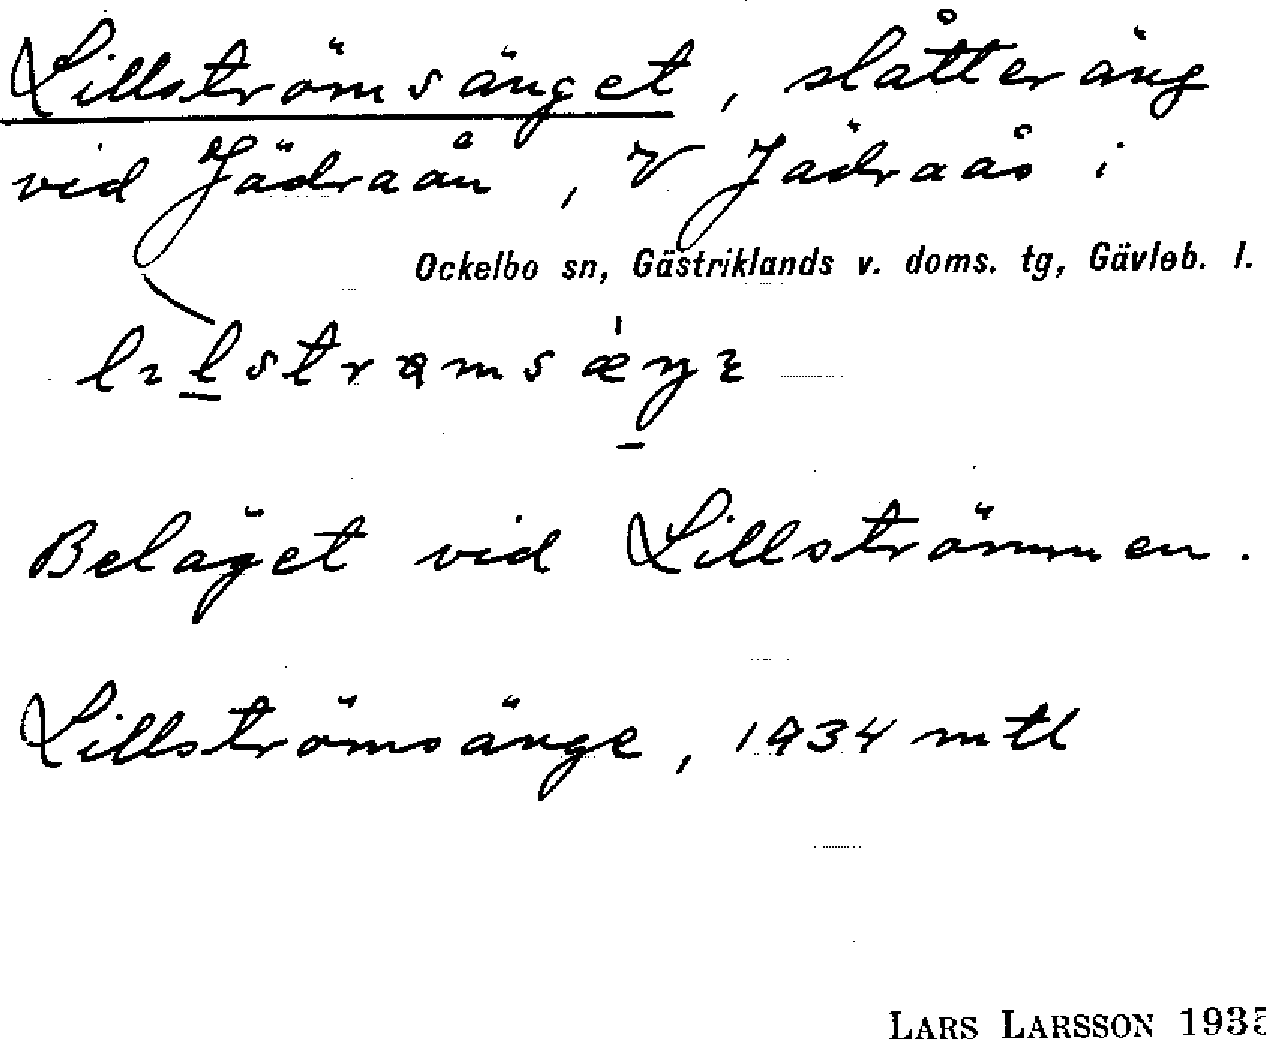 Lillströmsänget, slåtteräng
vid Jädraån, V Jädraås i
Ockelbo sn, Gästriklands v. doms. tg, Gävleb. l.
Beläget vid Lillströmmen.
Lillströmsänge, 1934 mtl
LARS LARSSON 1935